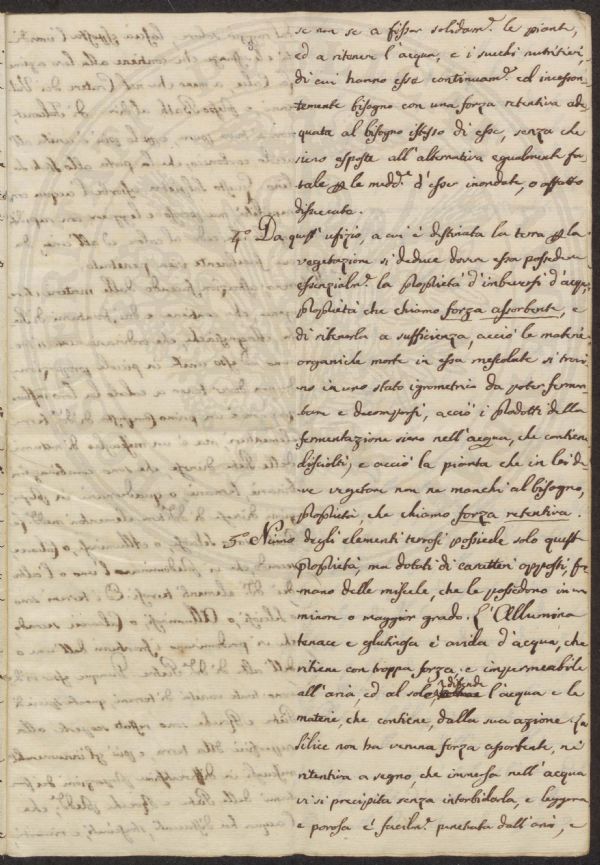 se non se a fissar solidam.e le piante,
ed a ritener l'acqua, e i succhi nutritivi,
di cui hanno esse continuam.e ed incessan-
temente bisogno con una forza retentiva ade
quata al bisogno istesso di esse, senza che
sieno esposte all'alternativa egualmente fa-
tale p le med.e d'esser inondate, o affatto
disseccate.
4.° Da quest'ufizio, a cui è destinata la terra p la
vegetazione si deduce dover essa possedere
essenzialm.e la proprietà d'imbeversi d'acqua,
proprietà che chiamo forza assorbente, e
di ritenerla a sufficienza, acciò le materie
organiche morte in essa mescolate si trovi
no in uno stato igrometrico da poter fermen-
tare e decomporsi, acciò i prodotti della
fermentazione siano nell'acqua, che contiene
disciolti, e acciò la pianta che in lei de
ve vegetare non ne manchi al bisogno,
proprietà, che chiamo forza retentiva.
5.° Niuno degli elementi terrosi possiede solo queste
proprietà, ma dotati di caratteri opposti, for
mano delle miscele, che le posseddono in un
minore o maggior grado. L'Allumina
tenace e glutinosa è avida d'acqua, che
ritiene con troppa forza, e impermeabile
all'aria, ed al sole, difende l'acqua e le
materie, che contiene, dalla sua azione. La
silice non ha veruna forza assorbente, nè
ritentiva a segno, che immersa nell'acqua
vi si precipita senza intorbidarla, e leggera
e porosa è facilm.e penetrata dall'aria, e